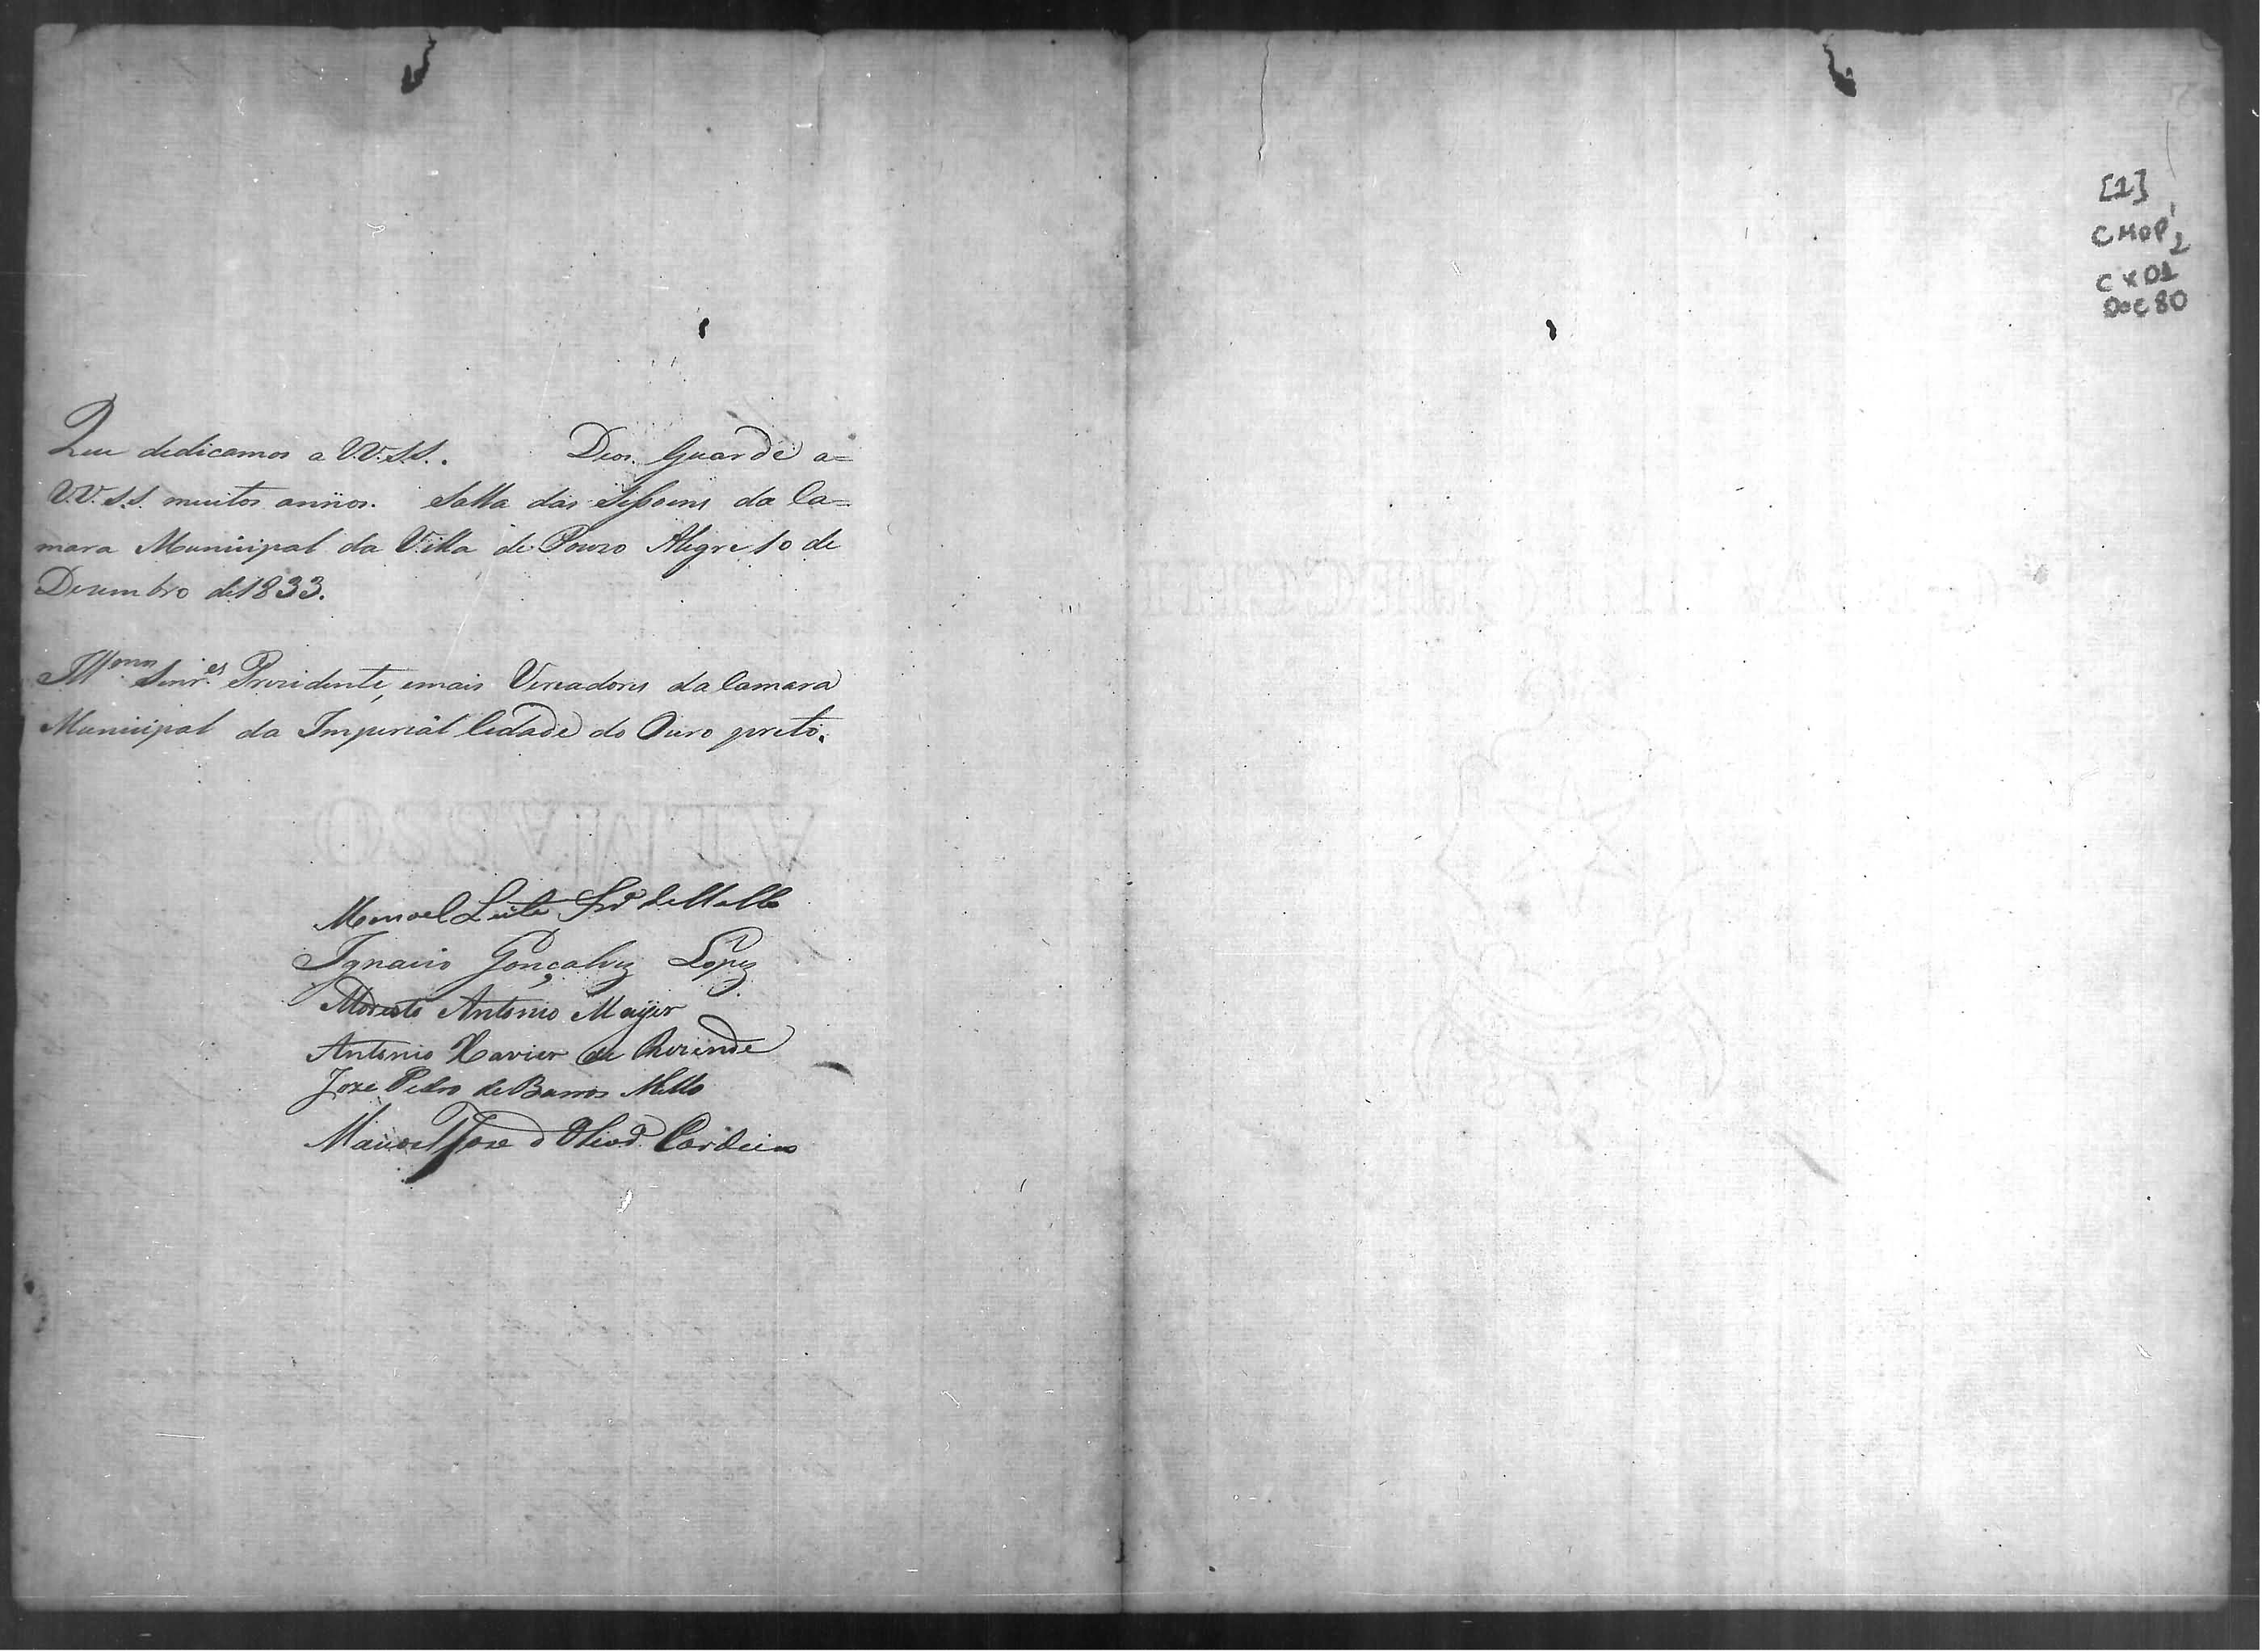 Que dedicamos a V.V.S.S. Deos Guarde a=
V.V.S.S. muitos annos. Salla das Sessoens da Ca=
mara Municipal da Villa de Pouzo Alegre 10 de
Dezembro de 1833.
Ill.mos Snr.es Prezidente, emais Vereadores da Camara
Municipal da Imperial Cidade do Ouro preto.
ATMAZZO
Manoel Leite de Mello
Ignacio Gonçalvez Lopez
Modesto Antonio Mayer
Antonio Xavier de Rezende
Joze Pedro de Barros Mello
Manoel Joze d Olivr.a Cordeiro
[1]
CMOP
2
CX01
DOC80